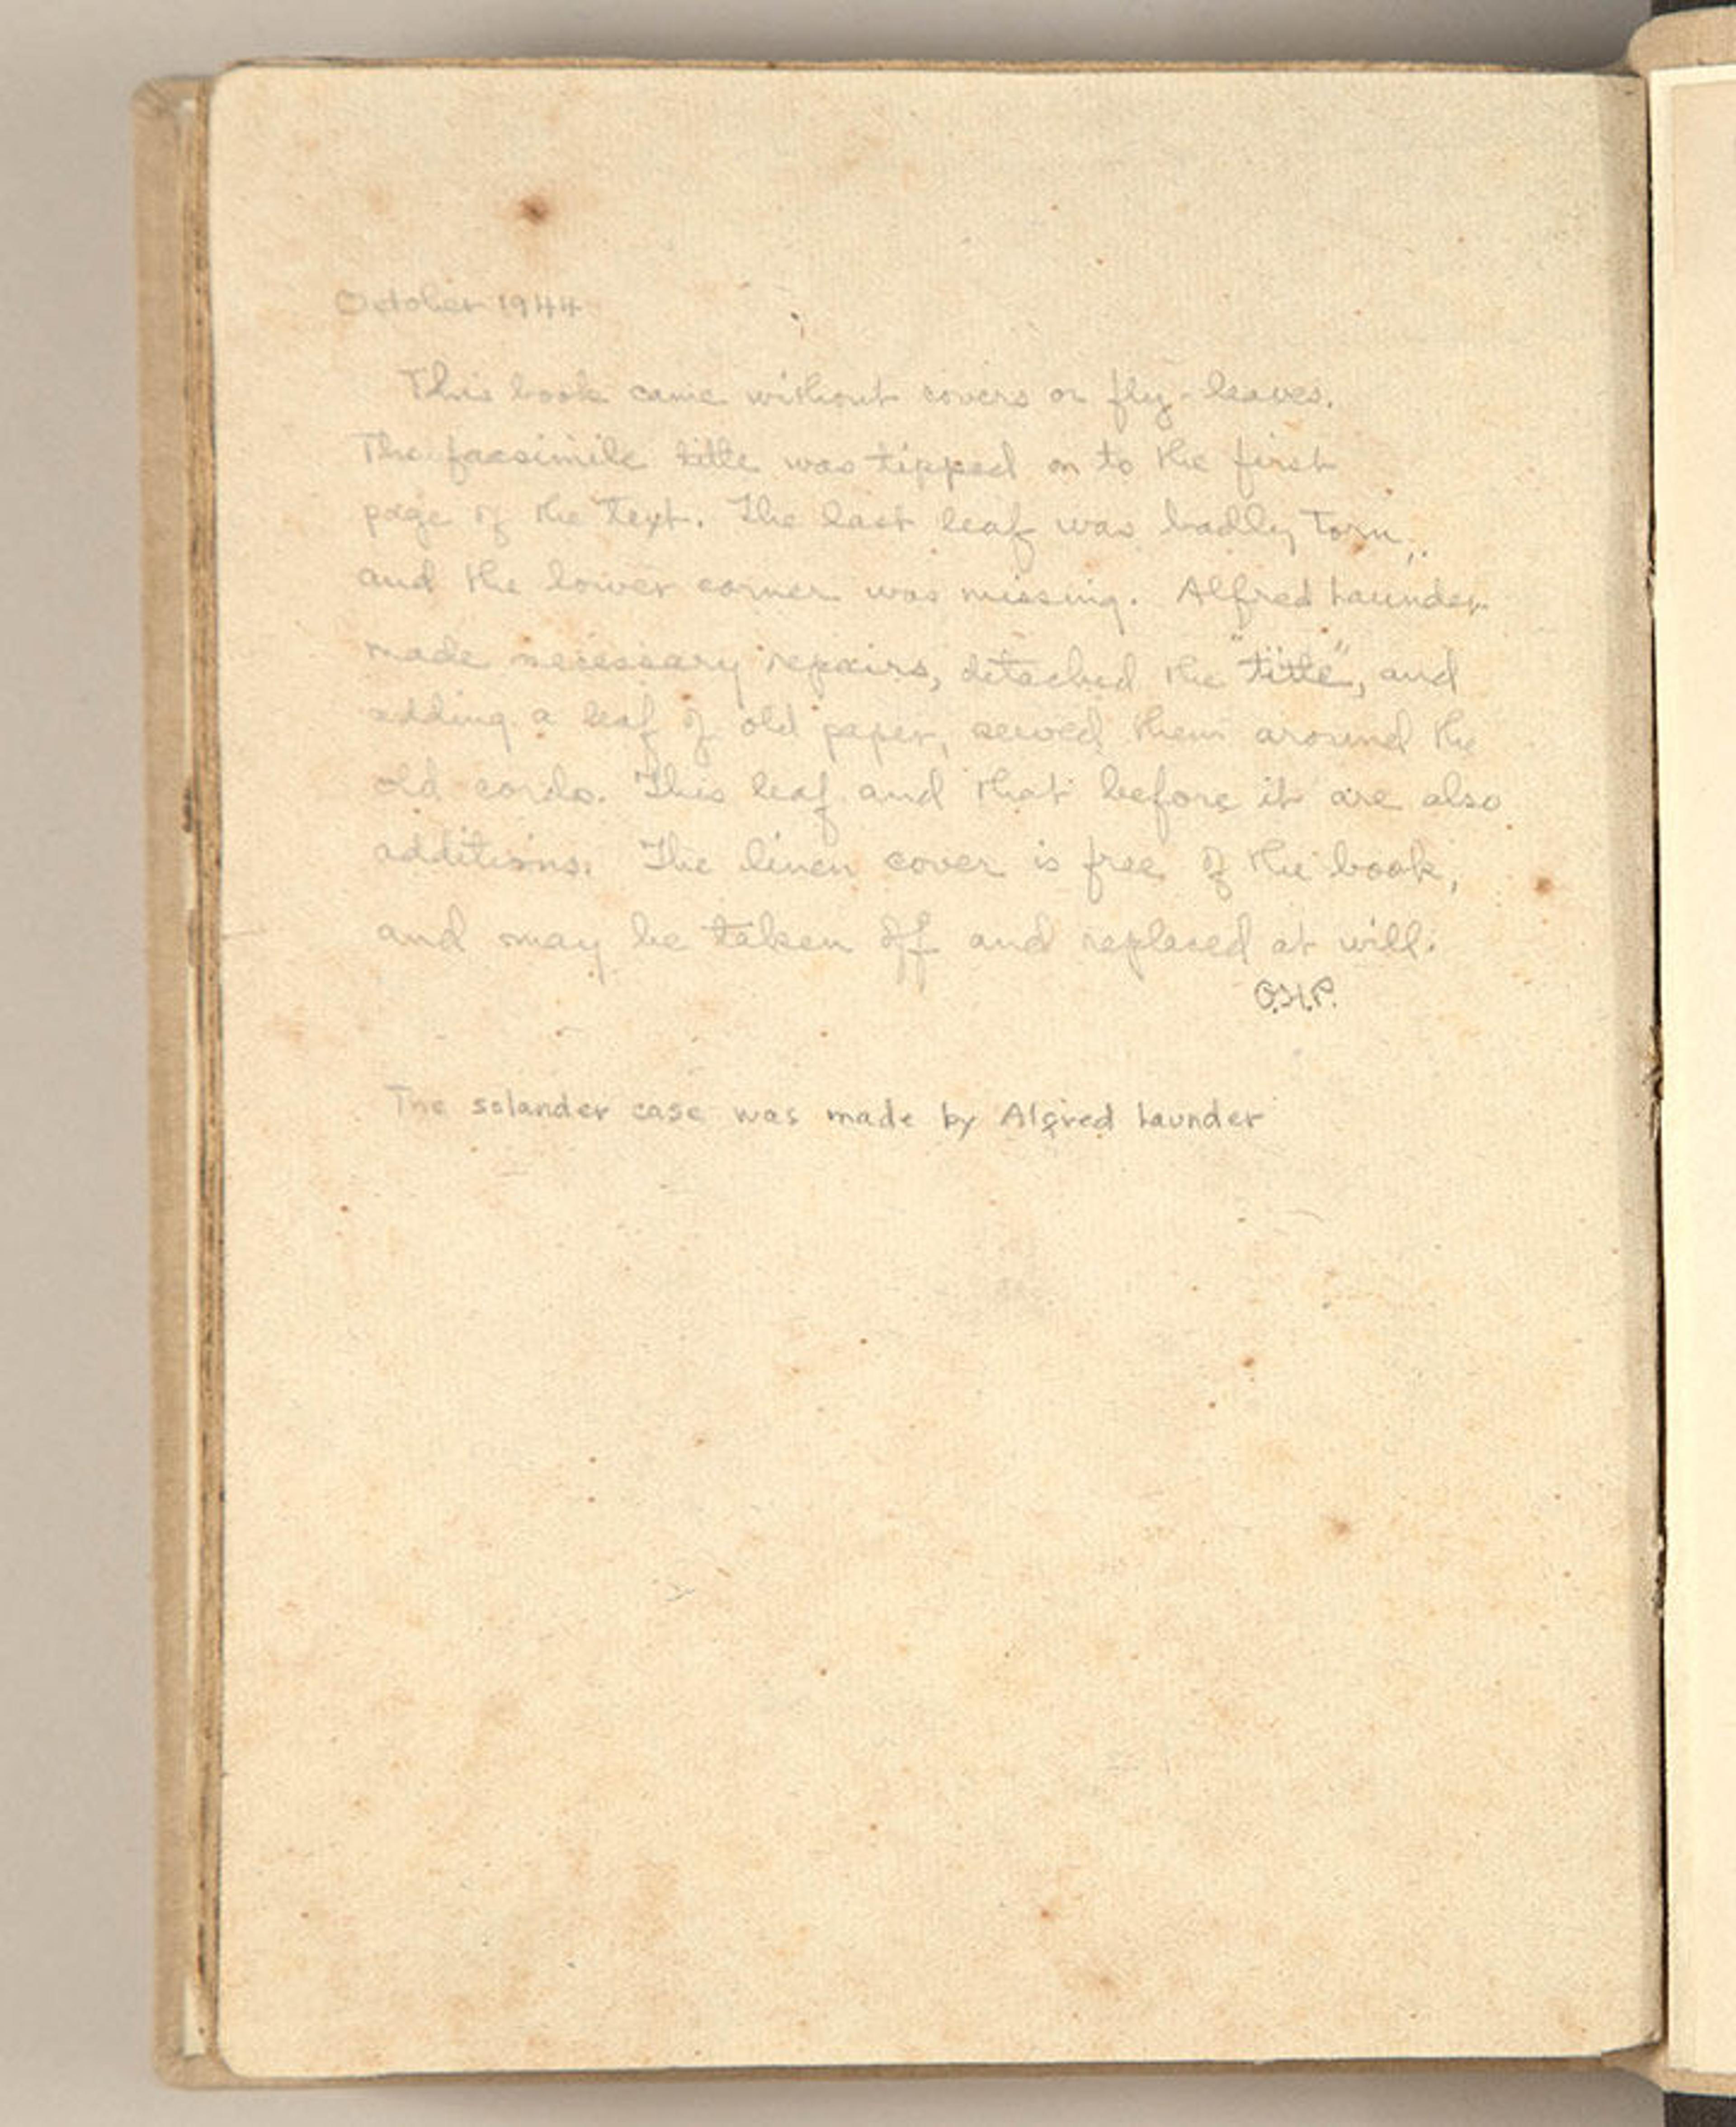 October 1944
This book came without covers or fly-leaves.
The facsimile title was tipped on to the first
page of the text. The last leaf was badly torn,
and the lower corner was missing. Alfred Launder
made necessary repairs, detached the "title", and
adding a leaf of old paper, sewed them around the
old cords. This leaf and that before it are also
additions. The linen cover is free of the book,
and may be taken off and replaced at will.
O.H.P.
The solander case was made by Alfred Launder